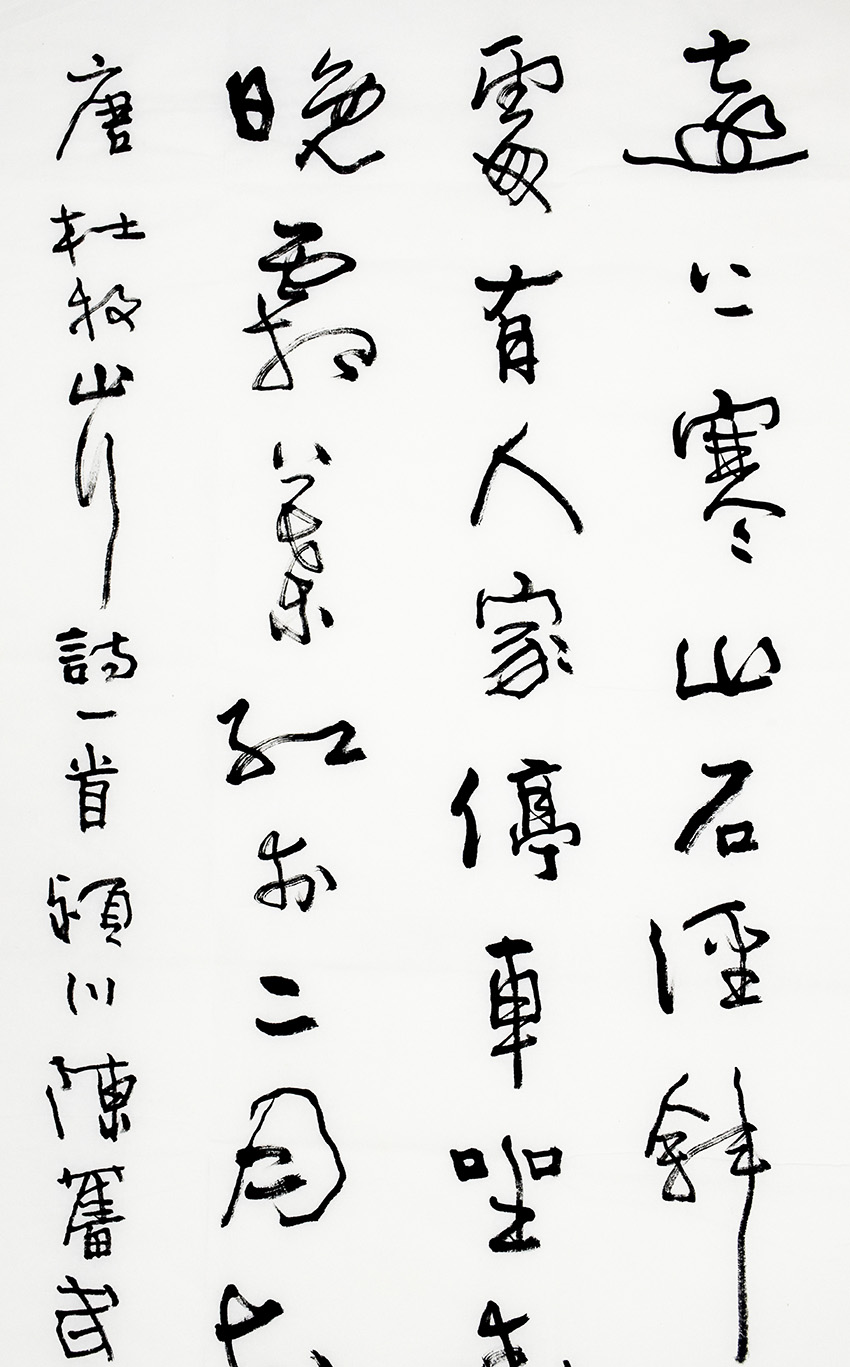 遠上寒山石徑斜
處有人家停車坐
晚霜葉紅於二月
唐杜牧山行詩一首潁川陳舊